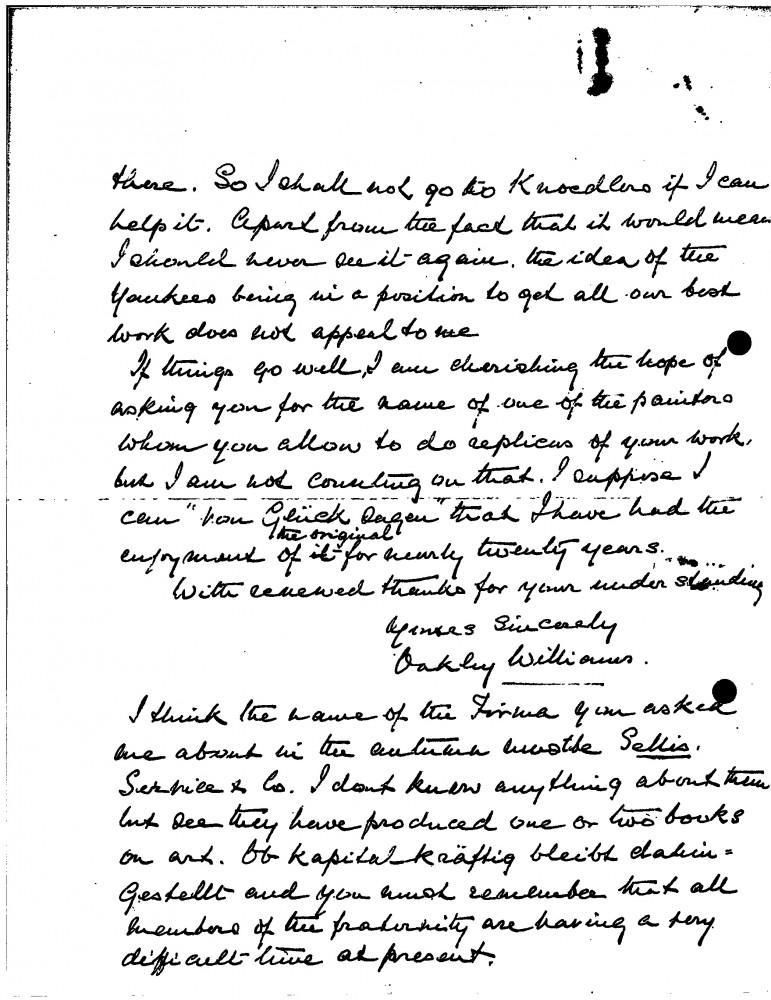 there. So I shall not go to Knoedlers if I can
help it. Apart from the fact that it would mean
I should never see it again, the idea of the
Yankees being in a position to get all our best
work does not appeal to me
If things go well, I am cherishing the hope of
asking you for the name of one of the painters
whom you allow to do replicas of your work,
but I am not counting on that. I suppose I
can "von Glück sagen" that I have had the
the original
enjoyment of it for nearly twenty years.
With renewed thanks for your understanding
Yours Sincerely
Oakley Williams.
I think the name of the Firma you asked
me about in the autumn must be Selfis.
Service & Co. I dont know anything about them
but see they have produced one or two books
on art. Ob Kapital kräftig bleibt dahin=
gestellt and you must remember that all
members of the fraternity are having a very
difficult time at present.